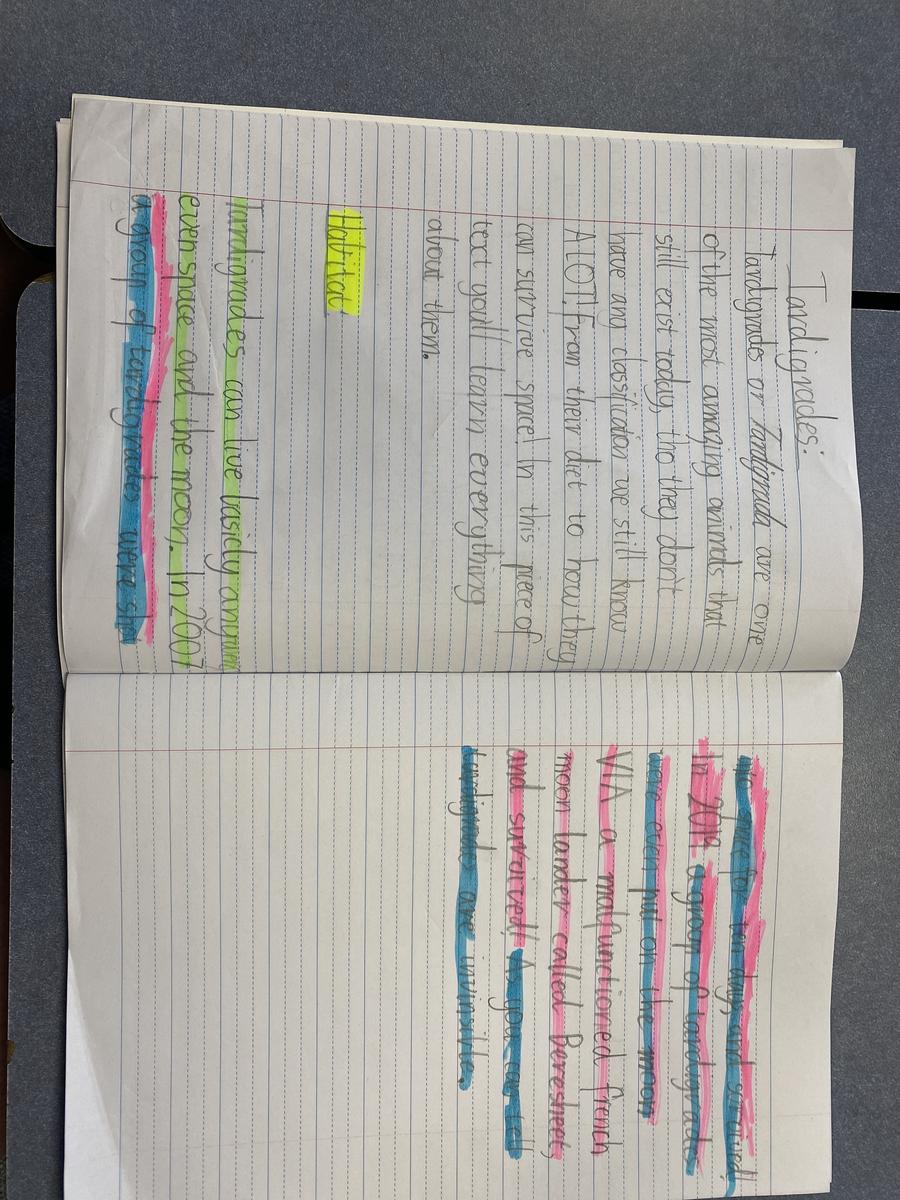 Tardigrades:
Tardigrades or Tardigrada are one
of the most amazing animals that
still exist today, tho they don't
have any classification we still know
A lOT! From their diet to how they
can survive space! In this piece of
text you'll learn everything
about them.
Habitat:
Tardigrades can live basicly anywere
even space and the moon. In 2007
a group of tardigrades were shot
into space for ten days, and survived!
In 2019 a group of tardigrades
were even put on the moon
VIA a malfunctioned french
moon lander called Beresheet,
and survived! As you can tell
tardigrades are invinsible.